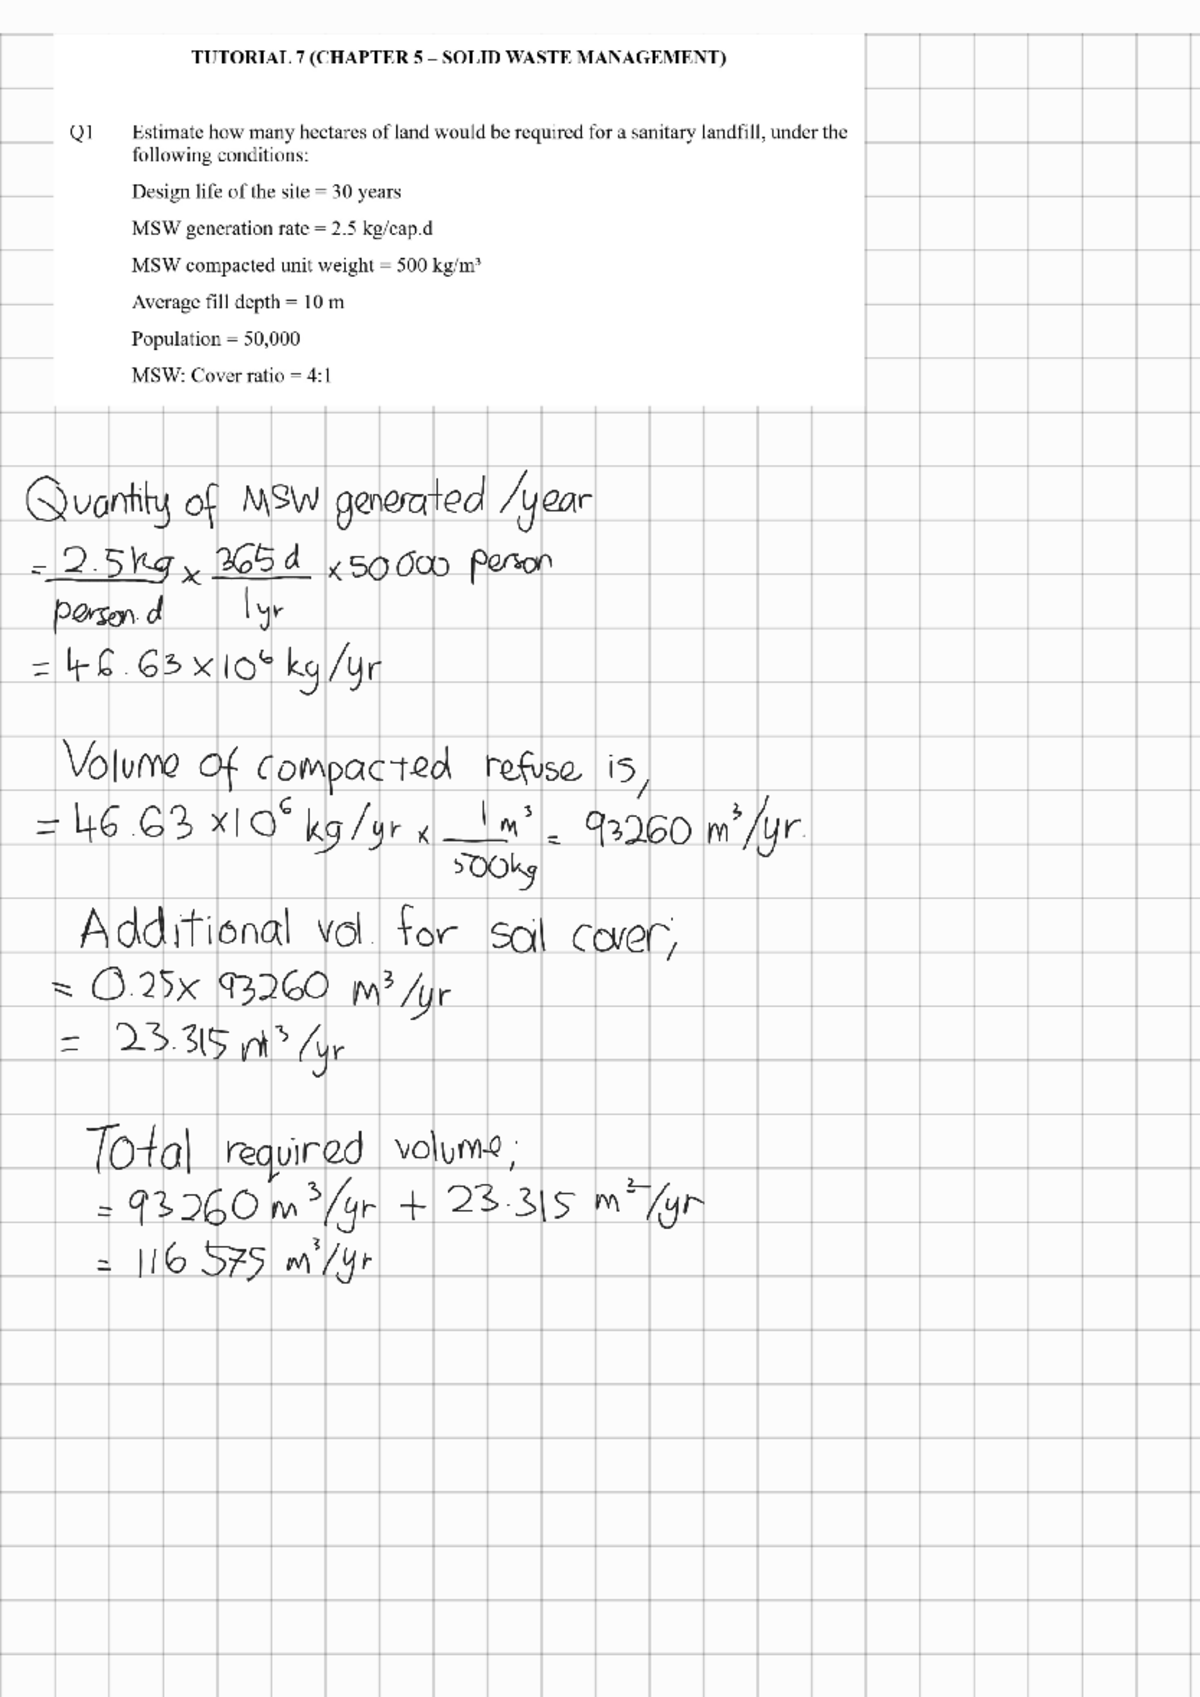 TUTORIAL 7 (CHAPTER 5 – SOLID WASTE MANAGEMENT)
Q1 Estimate how many hectares of land would be required for a sanitary landfill, under the
following conditions:
Design life of the site = 30 years
MSW generation rate = 2.5 kg/cap.d
MSW compacted unit weight = 500 kg/m³
Average fill depth = 10 m
Population = 50,000
MSW: Cover ratio = 4:1
Quantity of MSW generated /year
= 2.5kg × 365 d × 50 000 person
person.d 1yr
= 46.63 × 10⁶ kg/yr
Volume of compacted refuse is,
= 46.63 × 10⁶ kg/yr × 1 m³ = 93260 m³/yr.
500kg
Additional vol. for soil cover;
= 0.25 × 93260 m³/yr
= 23.315 m³/yr
Total required volume;
= 93260 m³/yr + 23.315 m²/yr
= 116 575 m³/yr